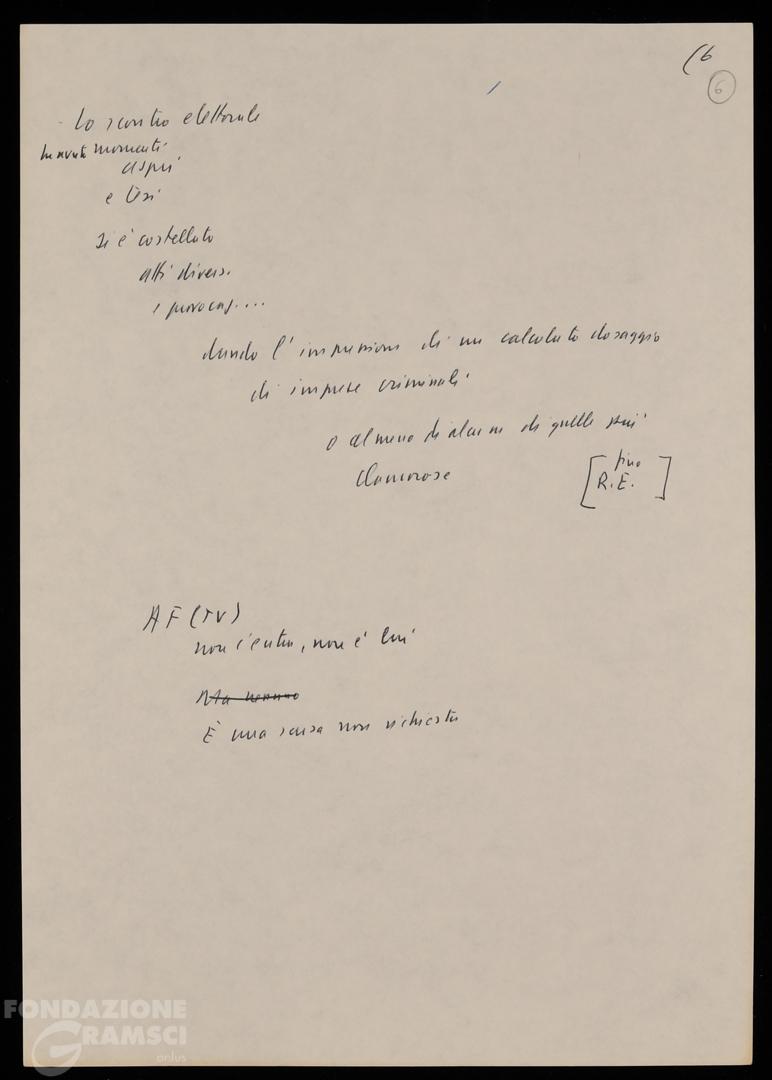 (6
6
- Lo scontro elettorale
ha avuto momenti
aspri
e tesi
si è costellato
atti diversi
i provocaz....
dando l'impressione di un calcolato dosaggio
di imprese criminali
o almeno di alcune di quelle più
clamorose
[fino
R.E.]
AF (TV)
non c'entra, non è lui
Ma nessuno
È una scusa non richiesta
FONDAZIONE
GRAMSCI
onlus